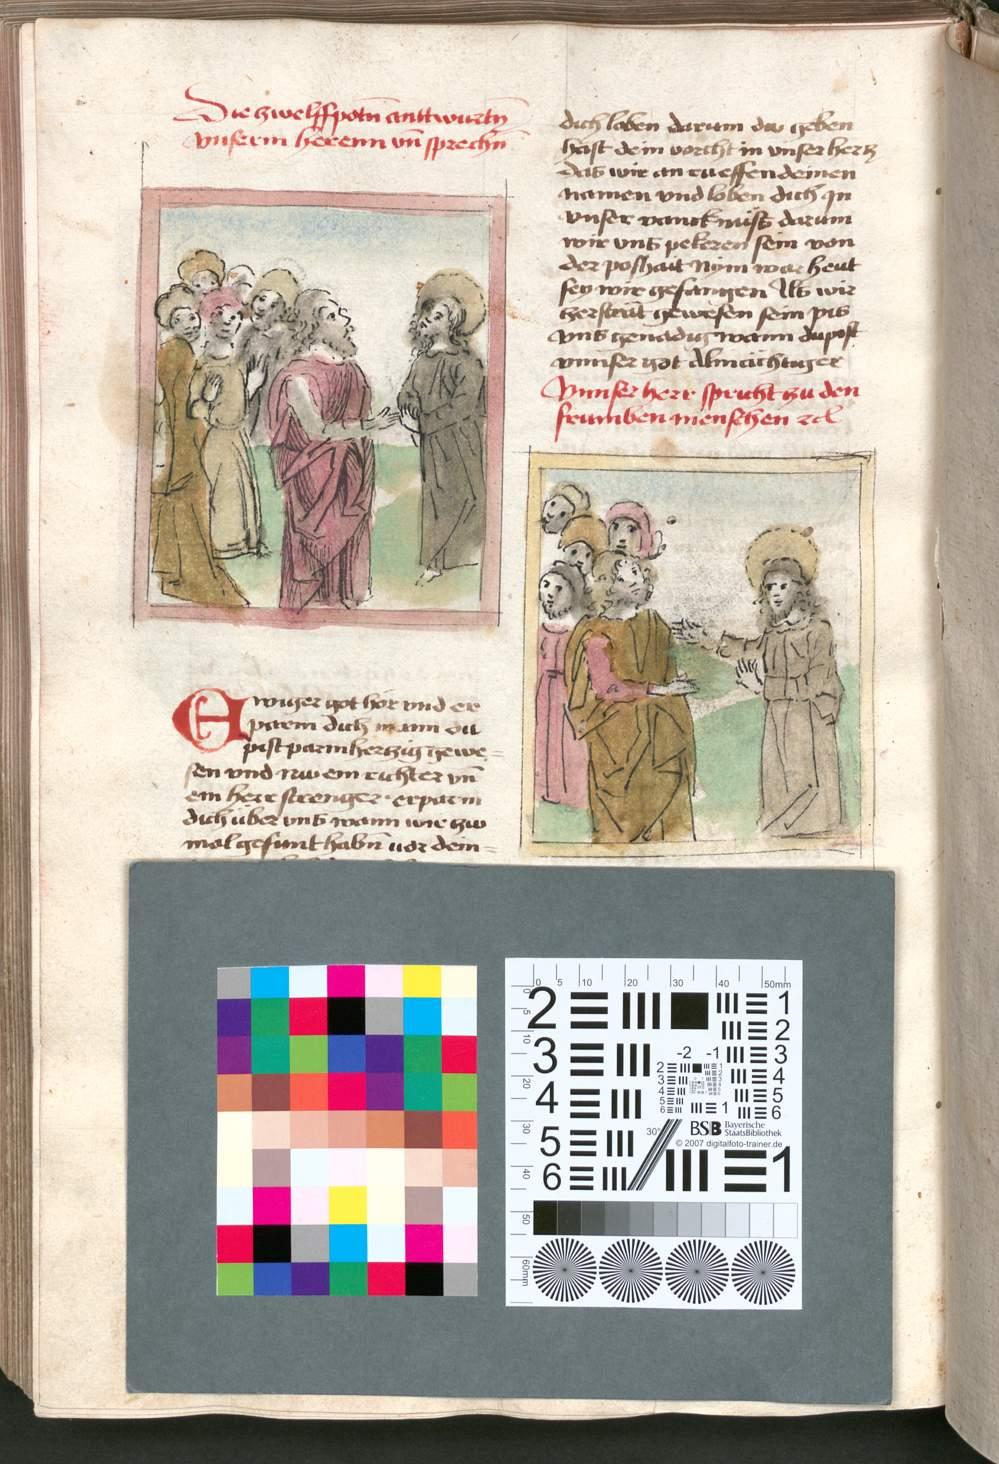 Die zwelffpotn̄ anttwurtn̄
vnserm herenn vn̄ sprechn̄
Ewiger got hör vnd er
parm dich wann du
pist parmhertzig gewe=
sen vnd nw ein richter vn̄
ein herr strenger erparm
dich über vns wann wir zw
mal gesunt habn̄ vor dein=
dich loben darum du geben
hast dein vorcht in vnser hertz
das wir an rueffen deinen
namen vnd loben dich jn
vnser vancknüss darum
wir vns pekeren sein von
der poshait Nym war heut
sey wir gefangen Als wir
zerströt gewesen sein pis
vns genädig wann du pist
vnnser got Almächtiger
Vnnser herr spricht zu den
frumben menschen
0 5 10 20 30 40 50mm
2 1
2
3 3
4 4
5
5 6
6 1
-2 -1
30°
BSB Bayerische
StaatsBibliothek
© 2007 digitalfoto-trainer.de
0 5 10 20 30 40 50 60mm